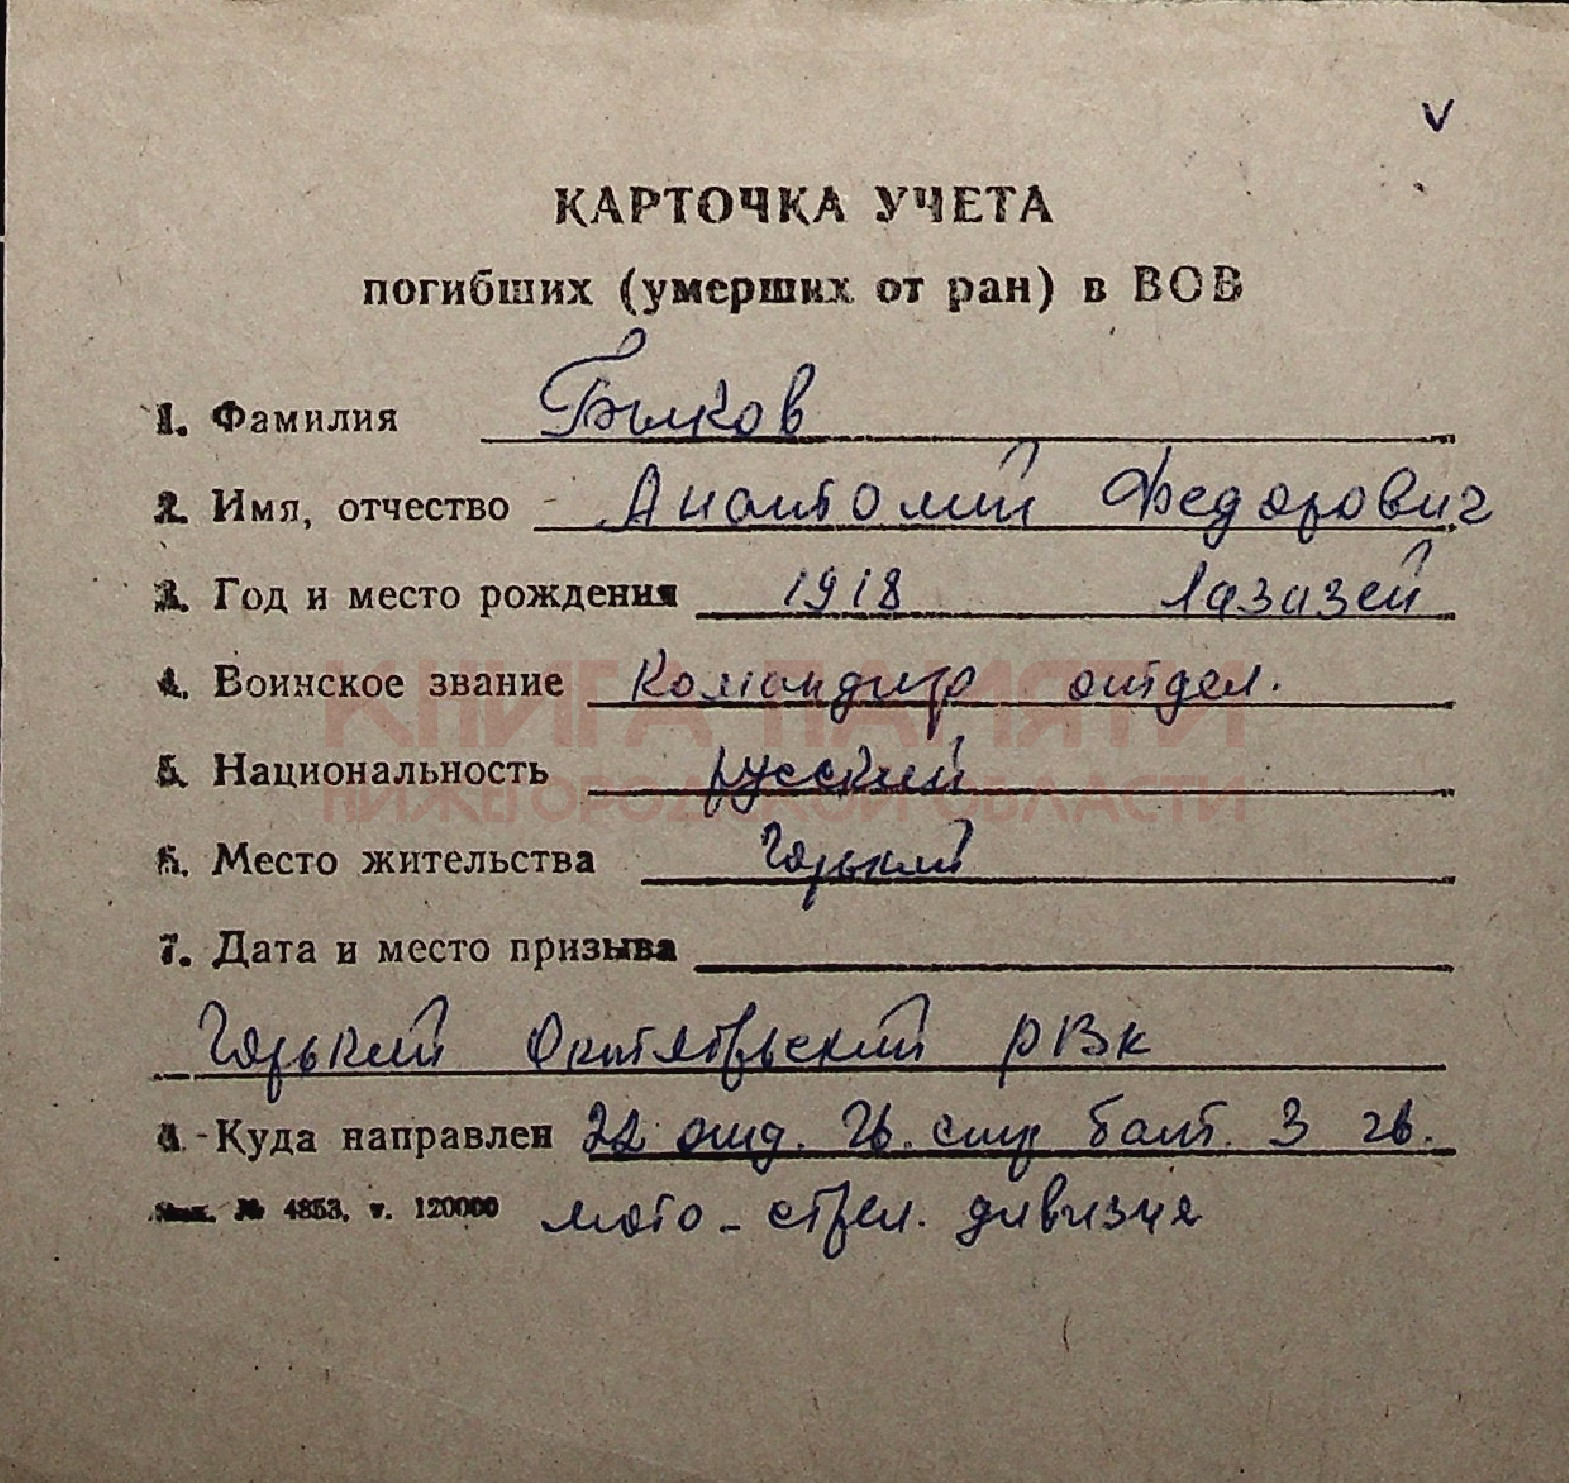 V
КАРТОЧКА УЧЕТА
погибших (умерших от ран) в ВОВ
1. Фамилия Быков
2. Имя, отчество - Анатолий Федорович
3. Год и место рождения 1918 Лазазей
4. Воинское звание Командир отдел.
КНИГА ПАМЯТИ
5. Национальность русский
НИЖЕГОРОДСКОЙ ОБЛАСТИ
6. Место жительства Горький
7. Дата и место призыва
Горький Октябрьский РВК
8. Куда направлен 22 отд. гв. стр бат. 3 гв.
№ 4853, т. 120000 мото-стрел. дивизия